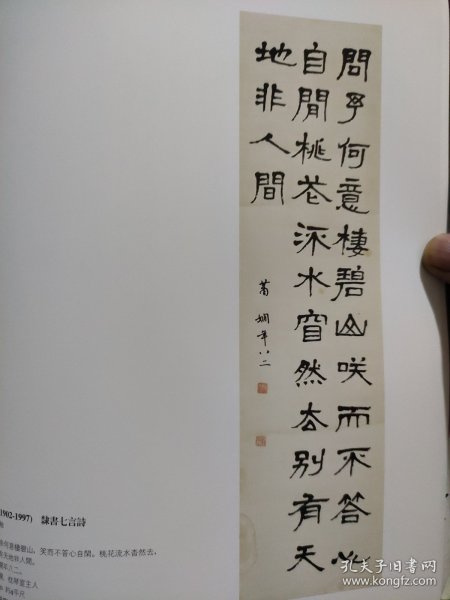 問予何意棲碧山咲而不答心
自閒桃花流水窅然去別有天
地非人間
蕭嫻年八二
1902-1997) 隸書七言詩
何意棲碧山，笑而不答心自閑。桃花流水杳然去，
天地非人間。
年八二。
孔夫子旧书网